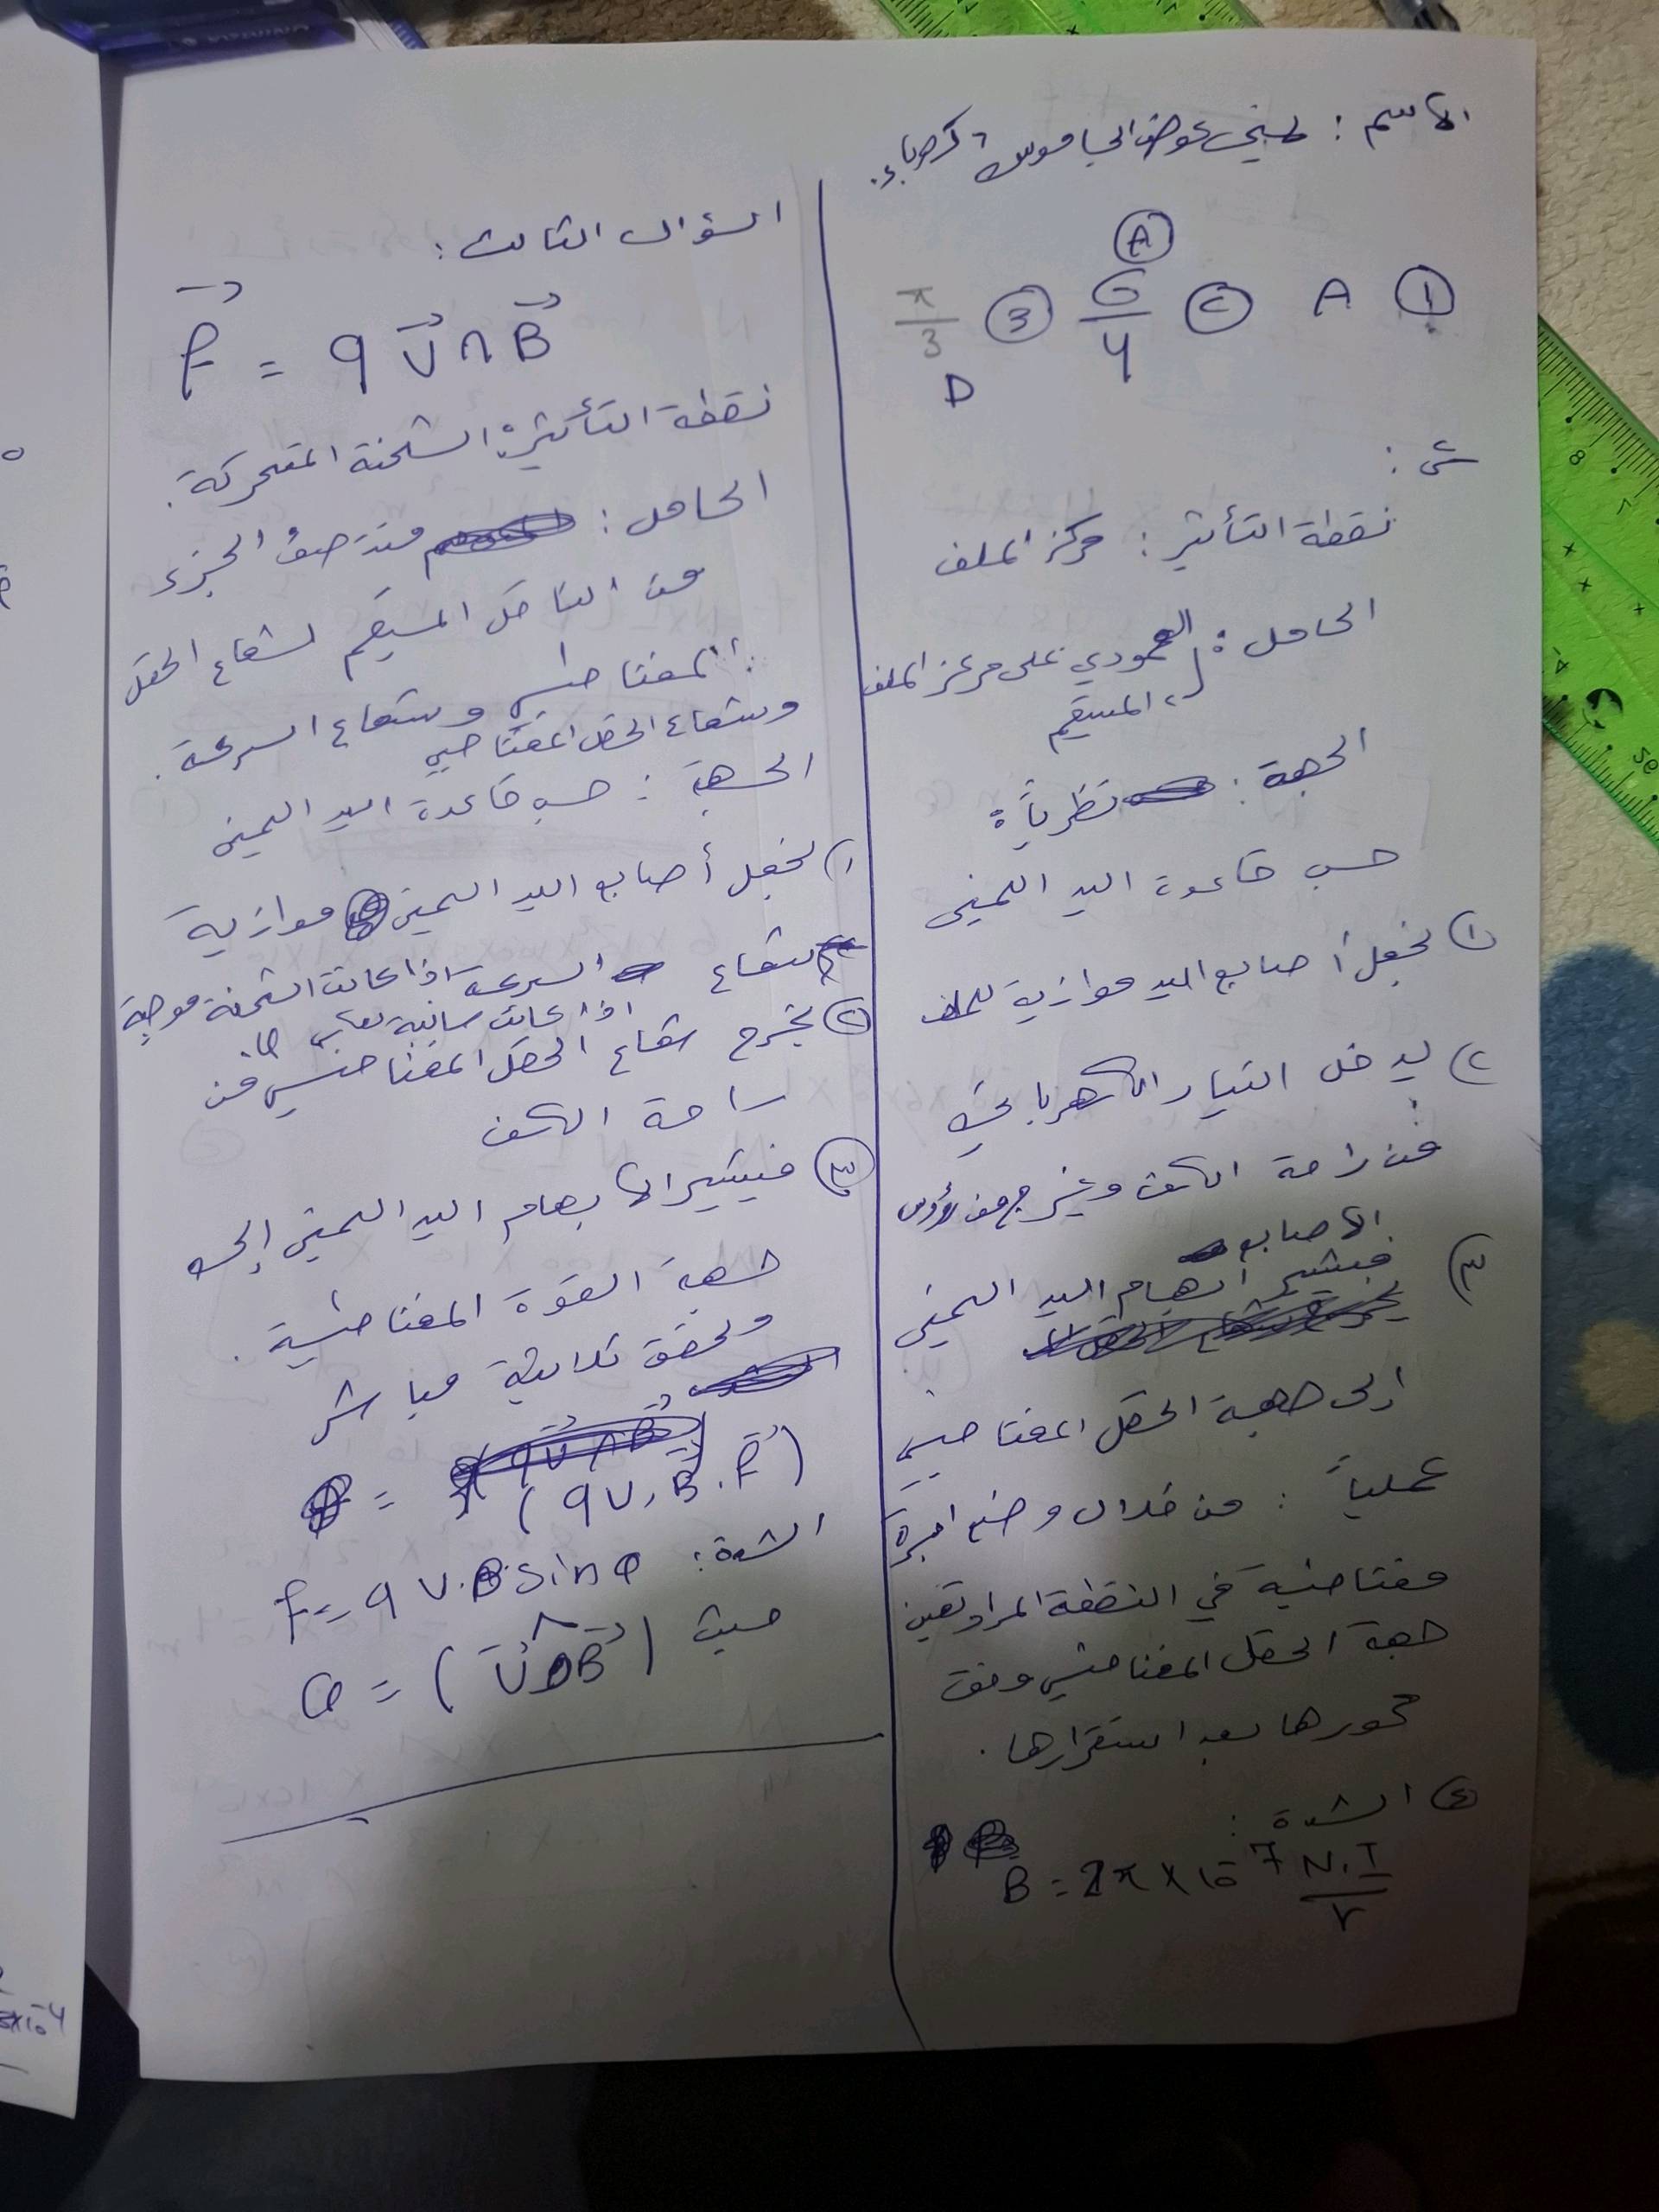 الاسم : عوض الجاموس ، كهرباء.
① A ② G/4 Ⓐ ③ π/3 D
س :
نقطة التأثير : مركز الملف
الحامل : العمودي على مركز الملف
المستقيم
الجهة : نظرياً :
حسب قاعدة اليد اليمنى
١) نجعل أصابع اليد موازية للملف
٢) يدخل التيار الكهربائي
من راحة الكف ويخرج من رؤوس
الأصابع
٣) فيشير ابهام اليد اليمنى
إلى جهة الحقل المغناطيسي
عملياً : من خلال وضع ابرة
مغناطيسية في النقطة المراد تعيين
جهة الحقل المغناطيسي وفق
محورها بعد استقرارها .
④ الشدة :
B = 2π × 10⁻⁷ N.I/r
السؤال الثالث :
F⃗ = q V⃗ ∧ B⃗
نقطة التأثير : الشحنة المتحركة .
الحامل : منتصف الجزء
من الناقل المستقيم لشعاع الحقل
المغناطيسي وشعاع السرعة .
وشعاع الحقل المغناطيسي
الجهة : حسب قاعدة اليد اليمنى
١) نجعل أصابع اليد اليمنى موازية
لشعاع السرعة اذا كانت الشحنة موجبة
اذا كانت سالبة بعكس
② يخرج شعاع الحقل المغناطيسي من
راحة الكف
③ فيشير الابهام اليد اليمنى إلى
جهة القوة المغناطيسية .
وتحقق ثلاثية مباشر
= (qV⃗, B⃗ . F⃗)
الشدة : F = q V.B sin θ
حيث θ = (V⃗ ^ B⃗)